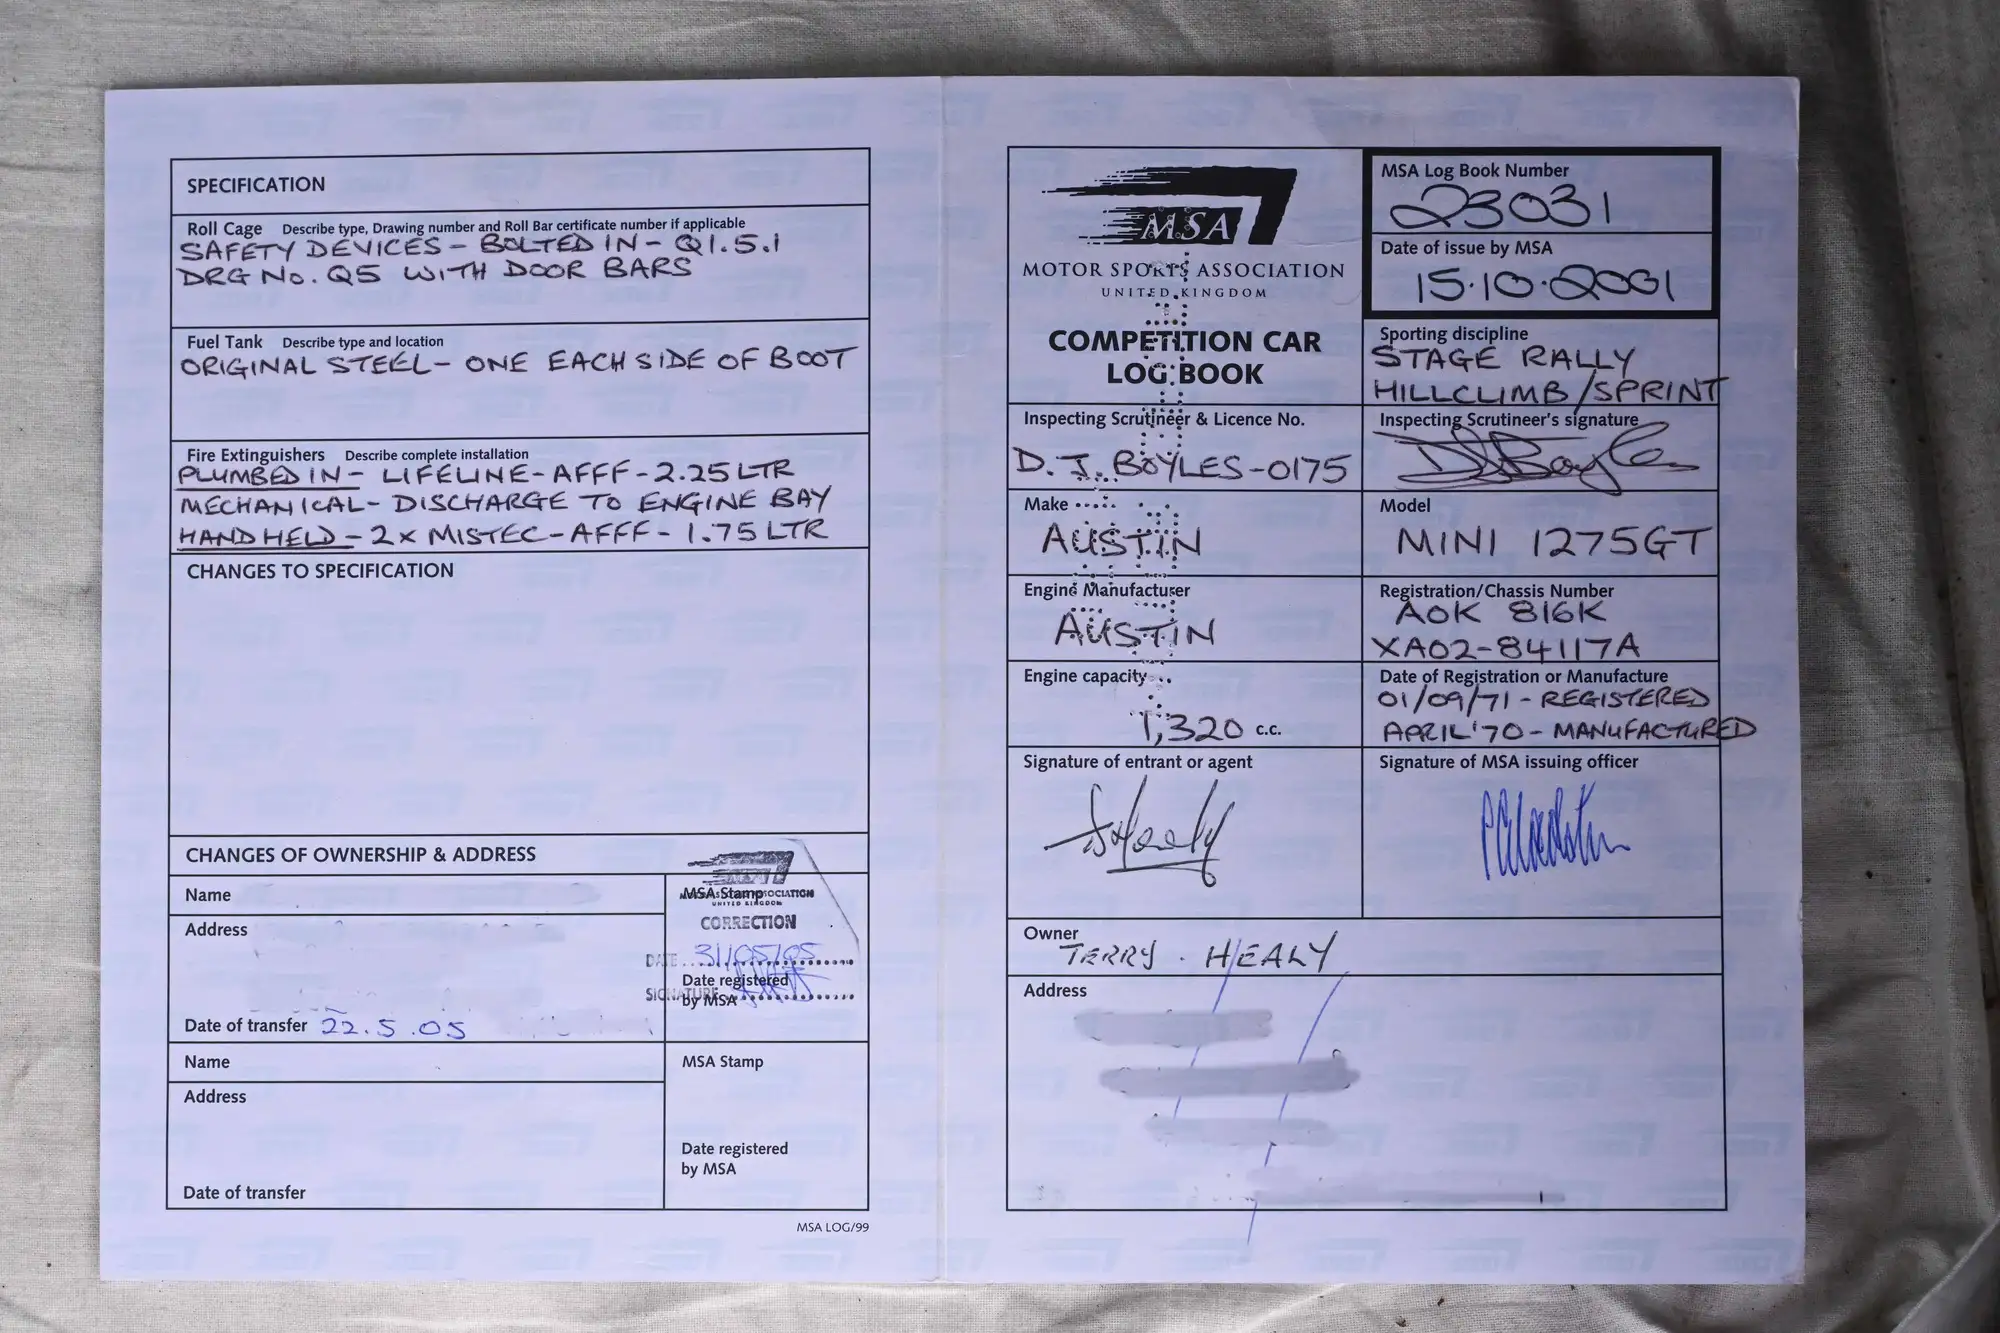 SPECIFICATION
Roll Cage Describe type, Drawing number and Roll Bar certificate number if applicable
SAFETY DEVICES - BOLTED IN - Q1.5.1
DRG No. Q5 WITH DOOR BARS
Fuel Tank Describe type and location
ORIGINAL STEEL - ONE EACH SIDE OF BOOT
Fire Extinguishers Describe complete installation
PLUMBED IN - LIFELINE - AFFF - 2.25 LTR
MECHANICAL - DISCHARGE TO ENGINE BAY
HAND HELD - 2 x MISTEC - AFFF - 1.75 LTR
CHANGES TO SPECIFICATION
CHANGES OF OWNERSHIP & ADDRESS
Name
MSA Stamp
UNITED KINGDOM
CORRECTION
Address
DATE 31/05/05
Date registered
by MSA
SIGNATURE
Date of transfer 22.5.05
Name
MSA Stamp
Address
Date registered
by MSA
Date of transfer
MSA LOG/99
MSA
MOTOR SPORTS ASSOCIATION
UNITED KINGDOM
COMPETITION CAR
LOG BOOK
MSA Log Book Number
23031
Date of issue by MSA
15.10.2001
Sporting discipline
STAGE RALLY
HILLCLIMB/SPRINT
Inspecting Scrutineer & Licence No.
D.J. BOYLES - 0175
Inspecting Scrutineer's signature
Make
AUSTIN
Model
MINI 1275GT
Engine Manufacturer
AUSTIN
Registration/Chassis Number
AOK 816K
XA02-84117A
Engine capacity
1,320 c.c.
Date of Registration or Manufacture
01/09/71 - REGISTERED
APRIL '70 - MANUFACTURED
Signature of entrant or agent
Signature of MSA issuing officer
Owner
TERRY. HEALY
Address